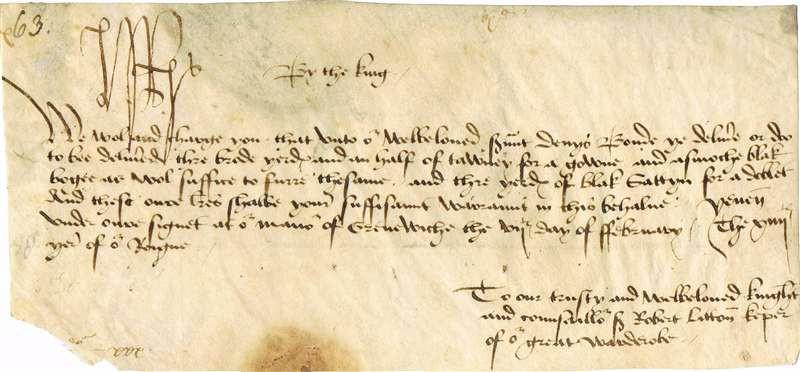 63.
By the king
We wol and charge you that unto oʳ welbeloved sʳunt Denys Bonde ye delivʳe or doo
to bee delivʳed thre brode yerdꝭ and an half of tawney for a gowne and asmoche blak
bogee as wol suffice to furre thesame and thre yerdꝭ of blak Sattyn for a doblet
And these oure lr̃es shalbe youʳ suffisaunt warannt in this behalve Yeven
under oure signet at oʳ Manoʳ of Grenewiche the vij day of ffebruary The
yerʳ of oʳ Reigne
To our trusty and welbeloved knight
and counsailloʳ Sʳ Robert Litton keper
of oʳ great warderobe